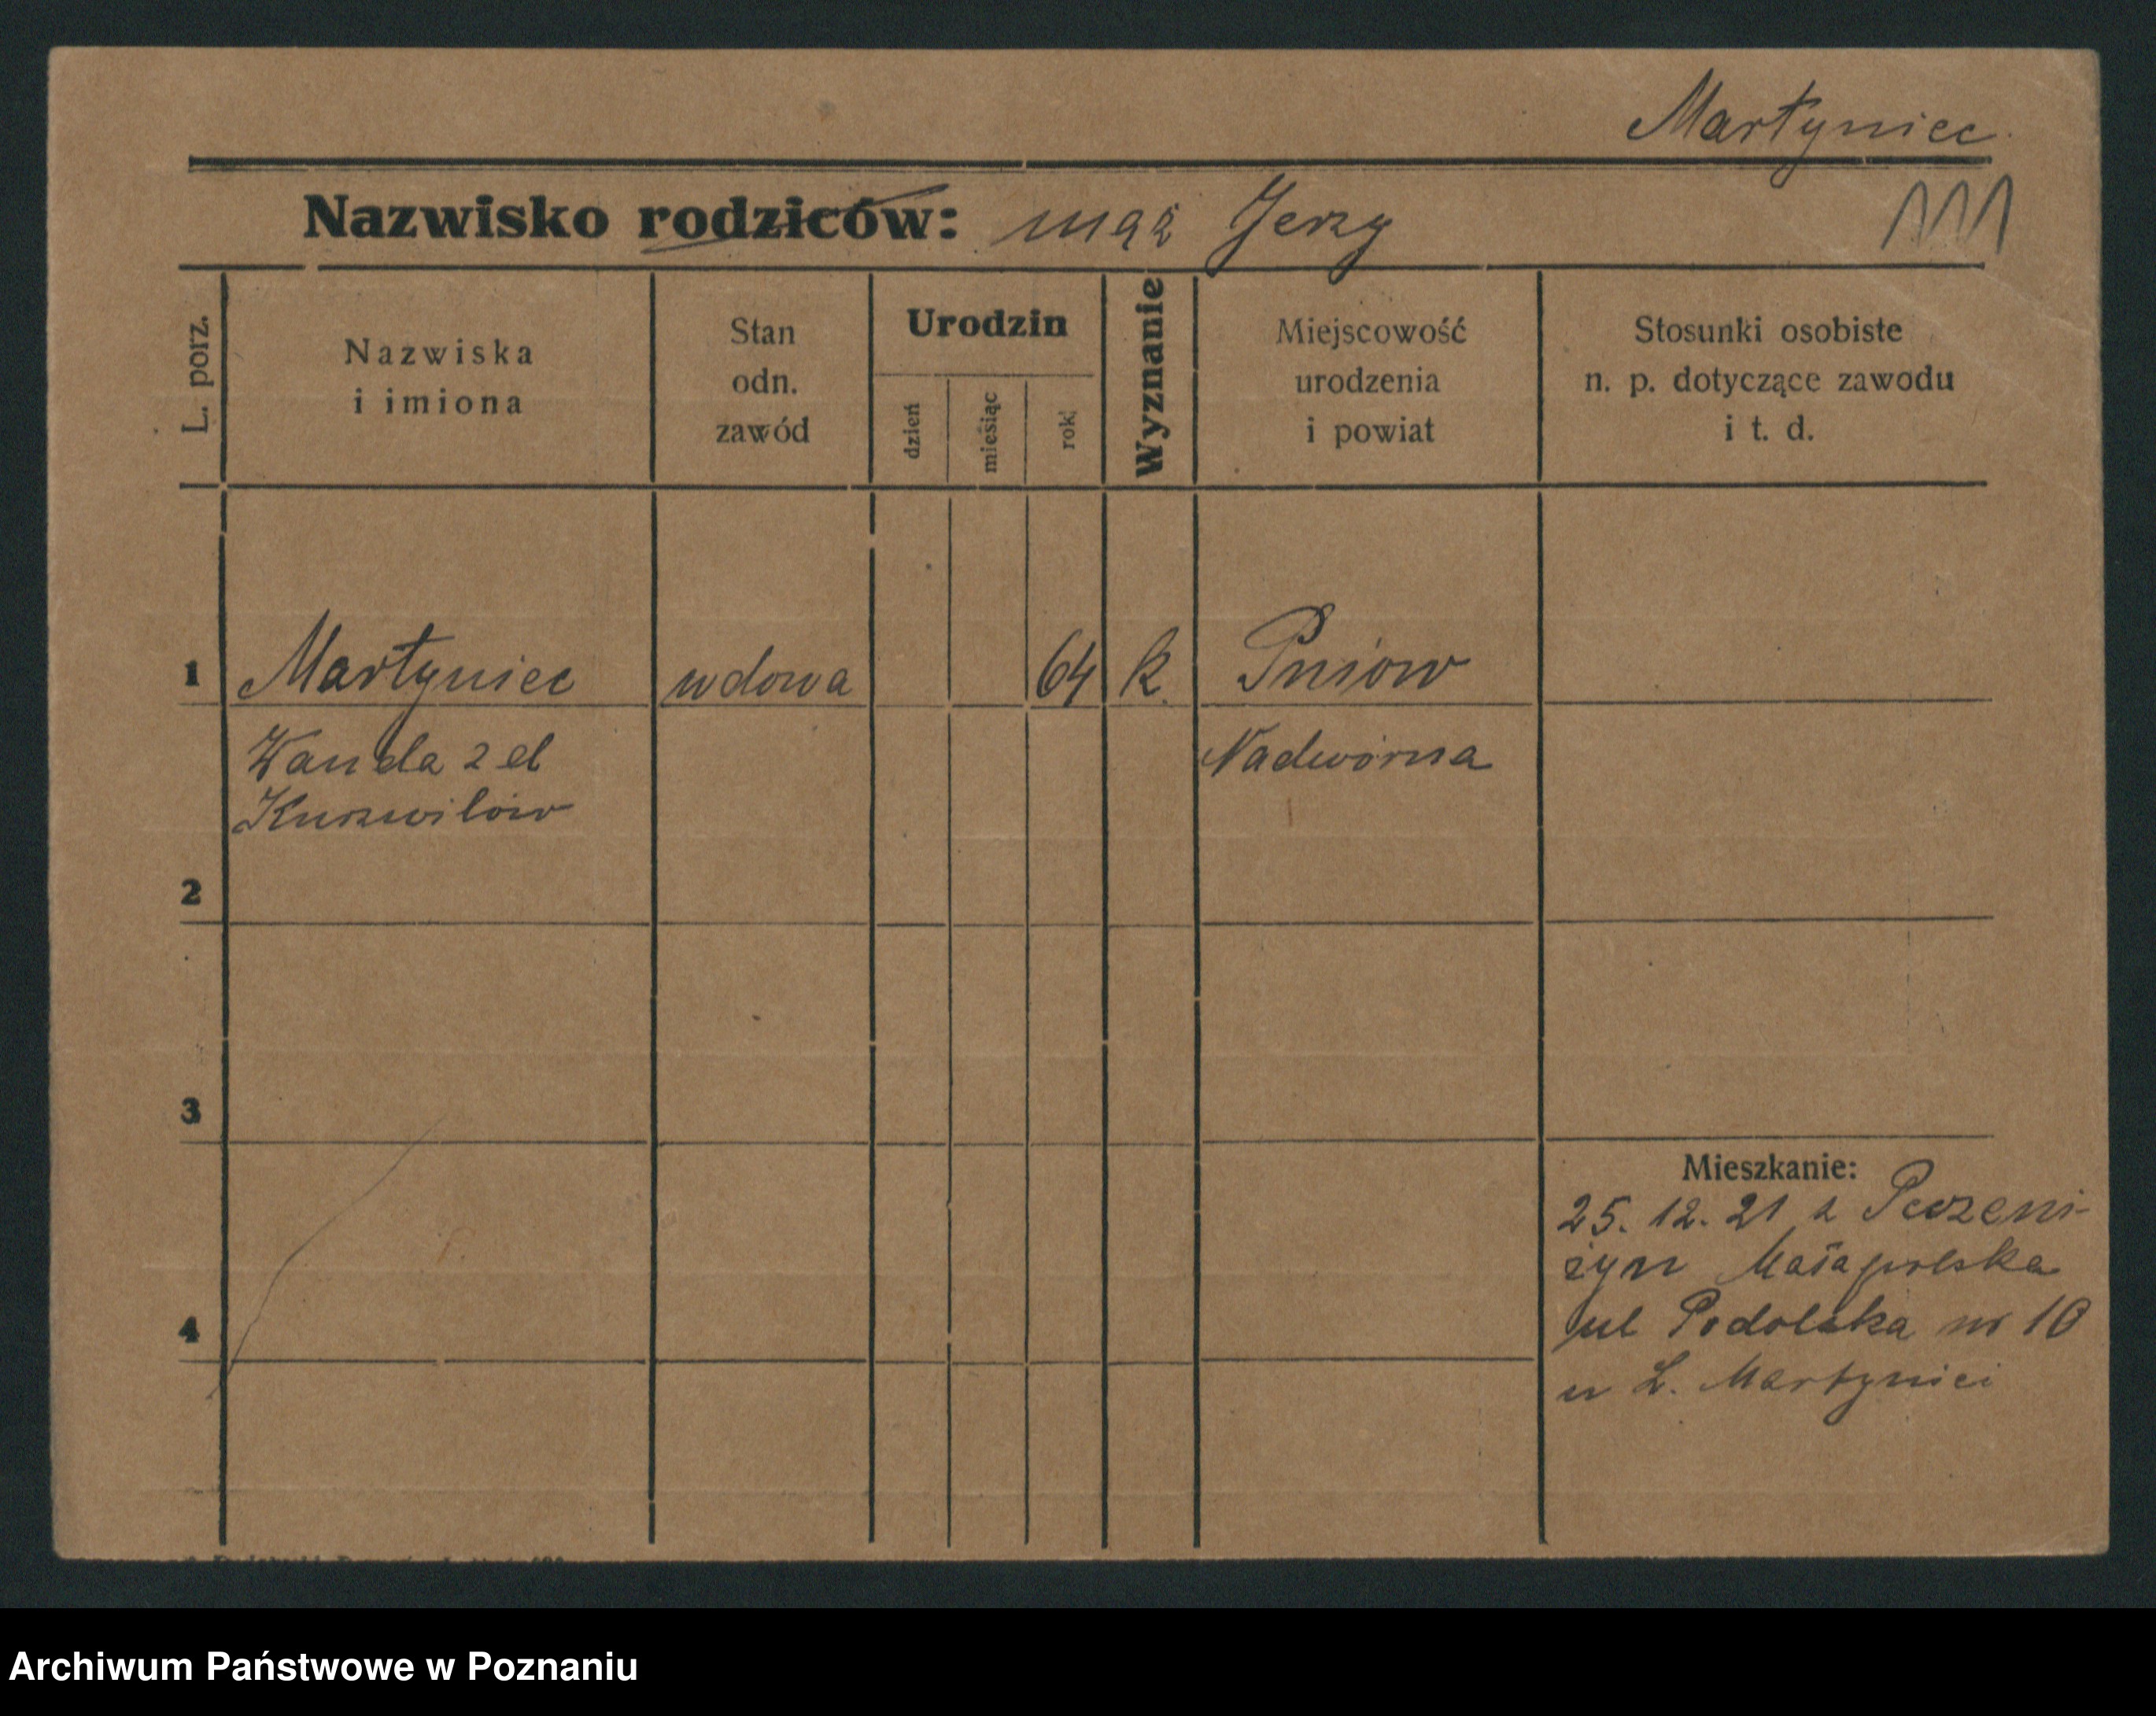 Martyniec
Nazwisko rodziców: mąż Jerzy
L. porz.
Nazwiska
i imiona
Stan
odn.
zawód
Urodzin
dzień
miesiąc
rok
Wyznanie
Miejscowość
urodzenia
i powiat
Stosunki osobiste
n. p. dotyczące zawodu
i t. d.
1 Martyniec wdowa 64 k. Pniow
Wanda z d Nadwórna
2
3
Mieszkanie:
25. 12. 21 z Peczeni-
żyn Małapolska
4 ul Podolska nr 10
u L. Martynieci
Archiwum Państwowe w Poznaniu